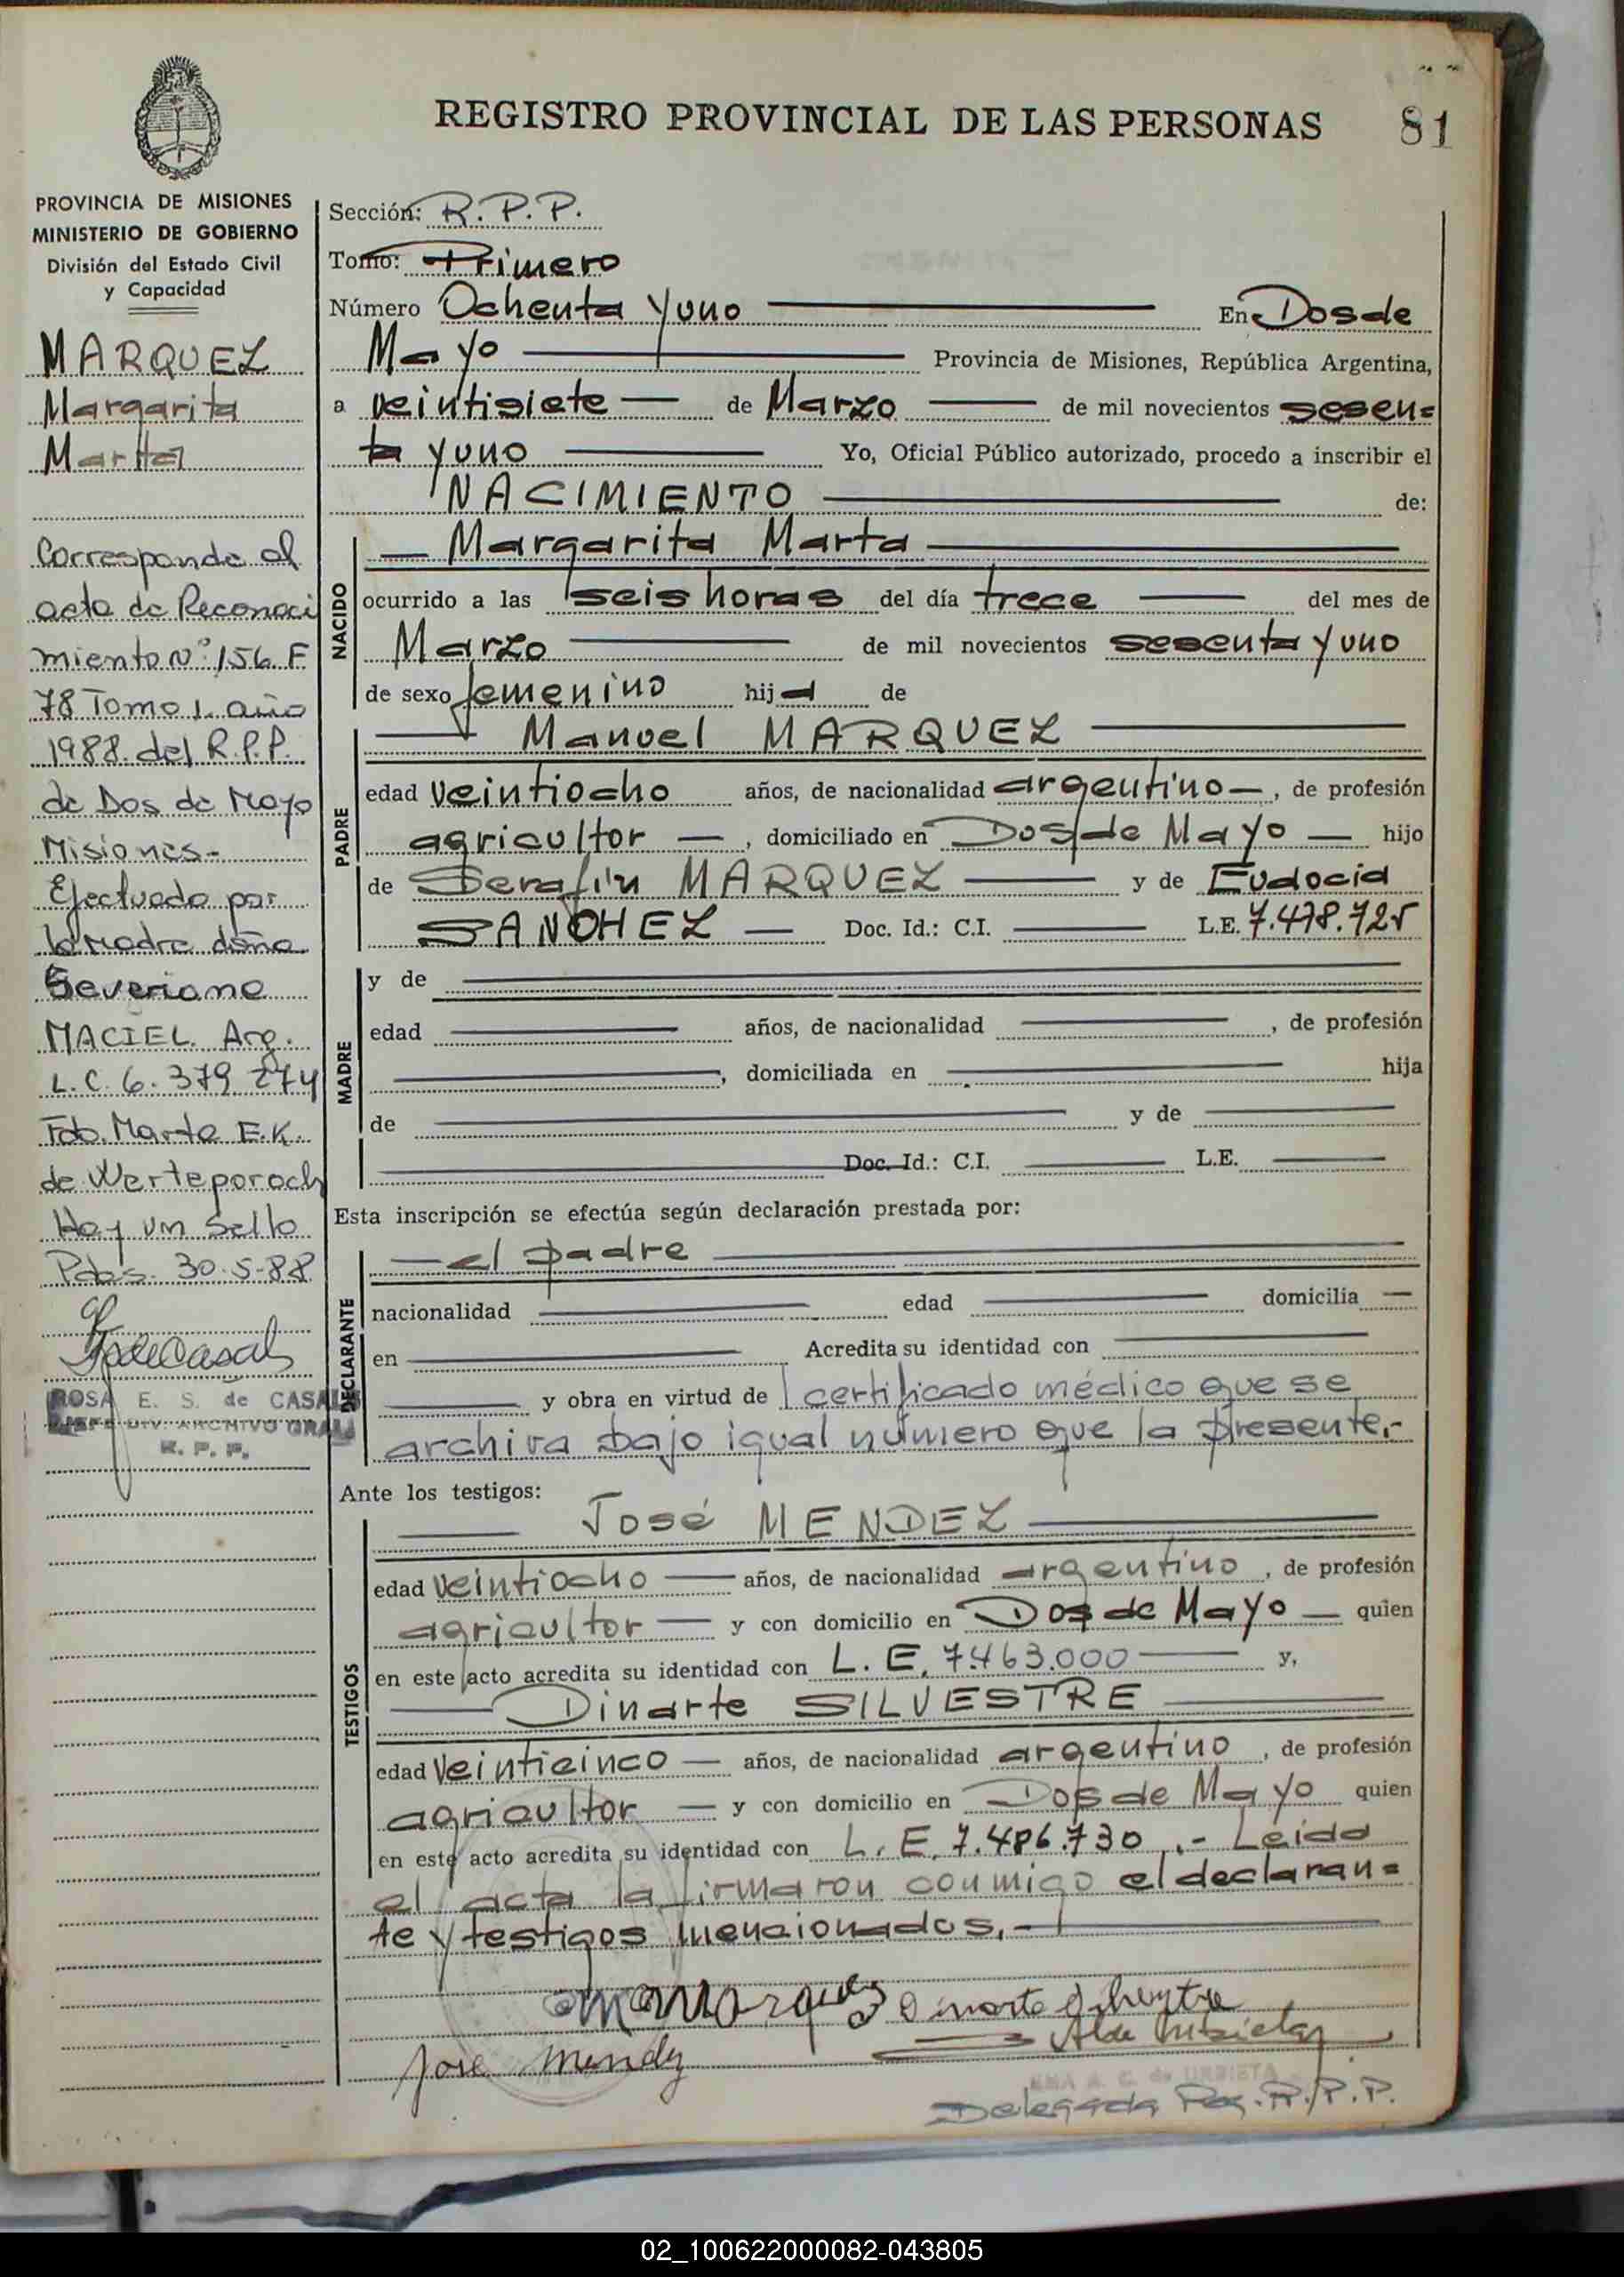 REGISTRO PROVINCIAL DE LAS PERSONAS 81
PROVINCIA DE MISIONES
MINISTERIO DE GOBIERNO
División del Estado Civil
y Capacidad
MARQUEZ
Margarita
Marta
Corresponde al
acta de Reconoci
miento Nº 156 F
78 Tomo 1. año
1988. del R.P.P.
de Dos de Mayo
Misiones-
Efectuado por
la madre doña
Severiana
MACIEL. Arg.
L.C. 6.379.274
Fdo. Marta E.K.
de Werteporoch
Hay un Sello
Pdas. 30-5-88
ROSA E. S. de CASALS
JEFE DIV. ARCHIVO GRAL
R. P. P.
Sección: R. P. P.
Tomo: Primero
Número Ochenta y uno En Dos de
Mayo Provincia de Misiones, República Argentina,
a veintisiete de Marzo de mil novecientos sesen=
ta y uno Yo, Oficial Público autorizado, procedo a inscribir el
NACIMIENTO de:
NACIDO
Margarita Marta
ocurrido a las seis horas del día trece del mes de
Marzo de mil novecientos sesenta y uno
de sexo femenino hija de
PADRE
Manuel MARQUEZ
edad veintiocho años, de nacionalidad argentino, de profesión
agricultor, domiciliado en Dos de Mayo hijo
de Serafín MARQUEZ y de Eudocia
SANCHEZ Doc. Id.: C.I. L.E. 7.478.725
MADRE
y de
edad años, de nacionalidad , de profesión
, domiciliada en hija
de y de
Doc. Id.: C.I. L.E.
Esta inscripción se efectúa según declaración prestada por:
DECLARANTE
el padre
nacionalidad edad domicilia
en Acredita su identidad con
y obra en virtud de certificado médico que se
archiva bajo igual número que la presente.-
Ante los testigos:
TESTIGOS
José MENDEZ
edad veintiocho años, de nacionalidad argentino, de profesión
agricultor y con domicilio en Dos de Mayo quien
en este acto acredita su identidad con L. E. 7.463.000 y,
Dinarte SILVESTRE
edad veinticinco años, de nacionalidad argentino, de profesión
agricultor y con domicilio en Dos de Mayo quien
en este acto acredita su identidad con L. E. 7.486.730.- Leida
el acta la firmaron conmigo el declaran=
te y testigos mencionados.-
Jose Mendez
A. C. de URBIETA
Delegada Reg. R.P.P.
02_100622000082-043805